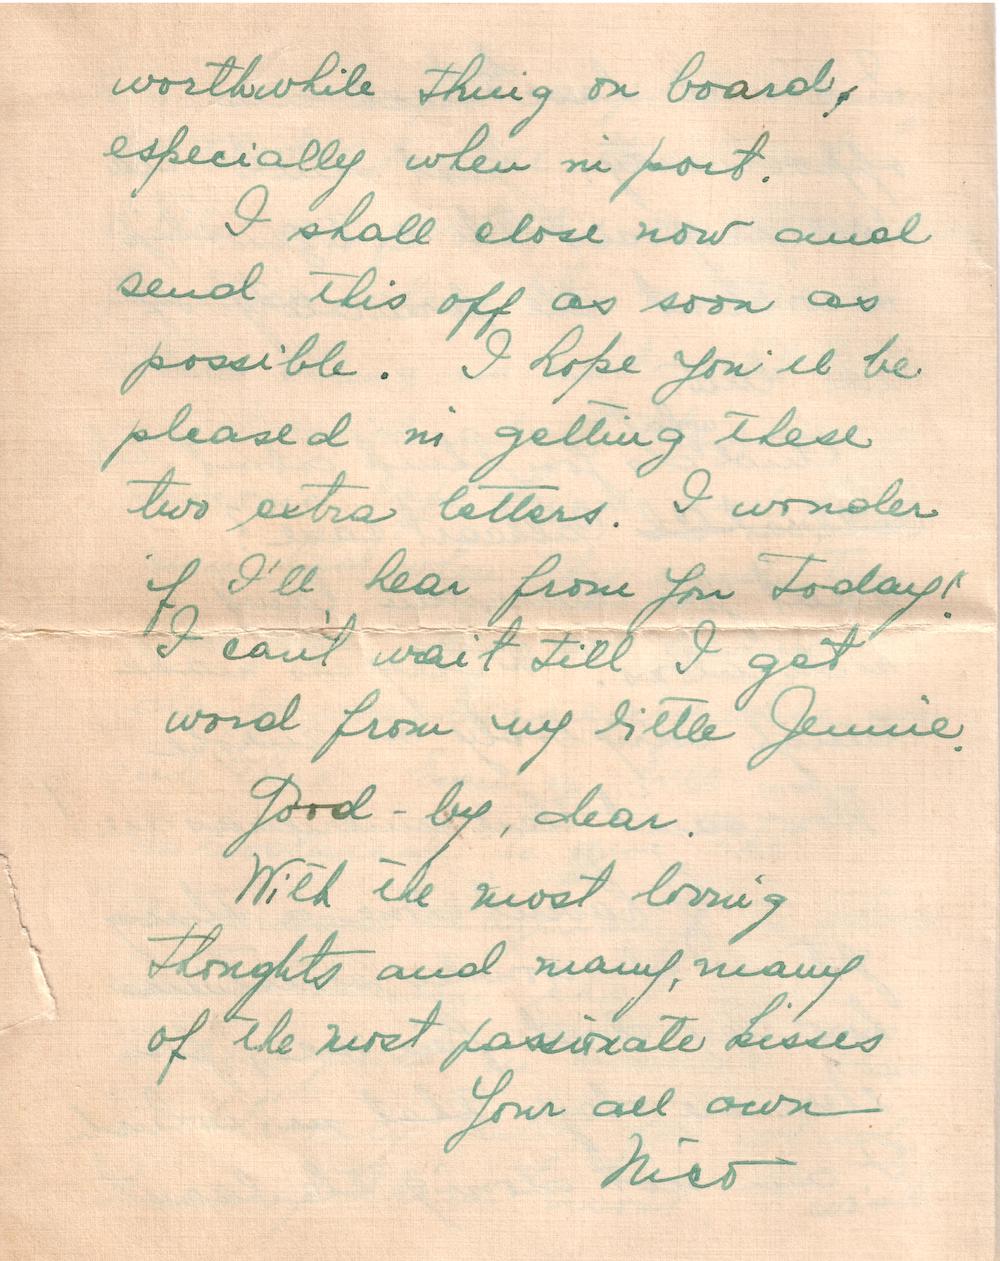 worthwhile thing on board,
especially when in port.
I shall close now and
send this off as soon as
possible. I hope you'll be
pleased in getting these
two extra letters. I wonder
if I'll hear from you today!
I can't wait till I get
word from my little Jennie.
Good-by, dear.
With the most loving
thoughts and many, many
of the most passionate kisses
Your all own
Nico